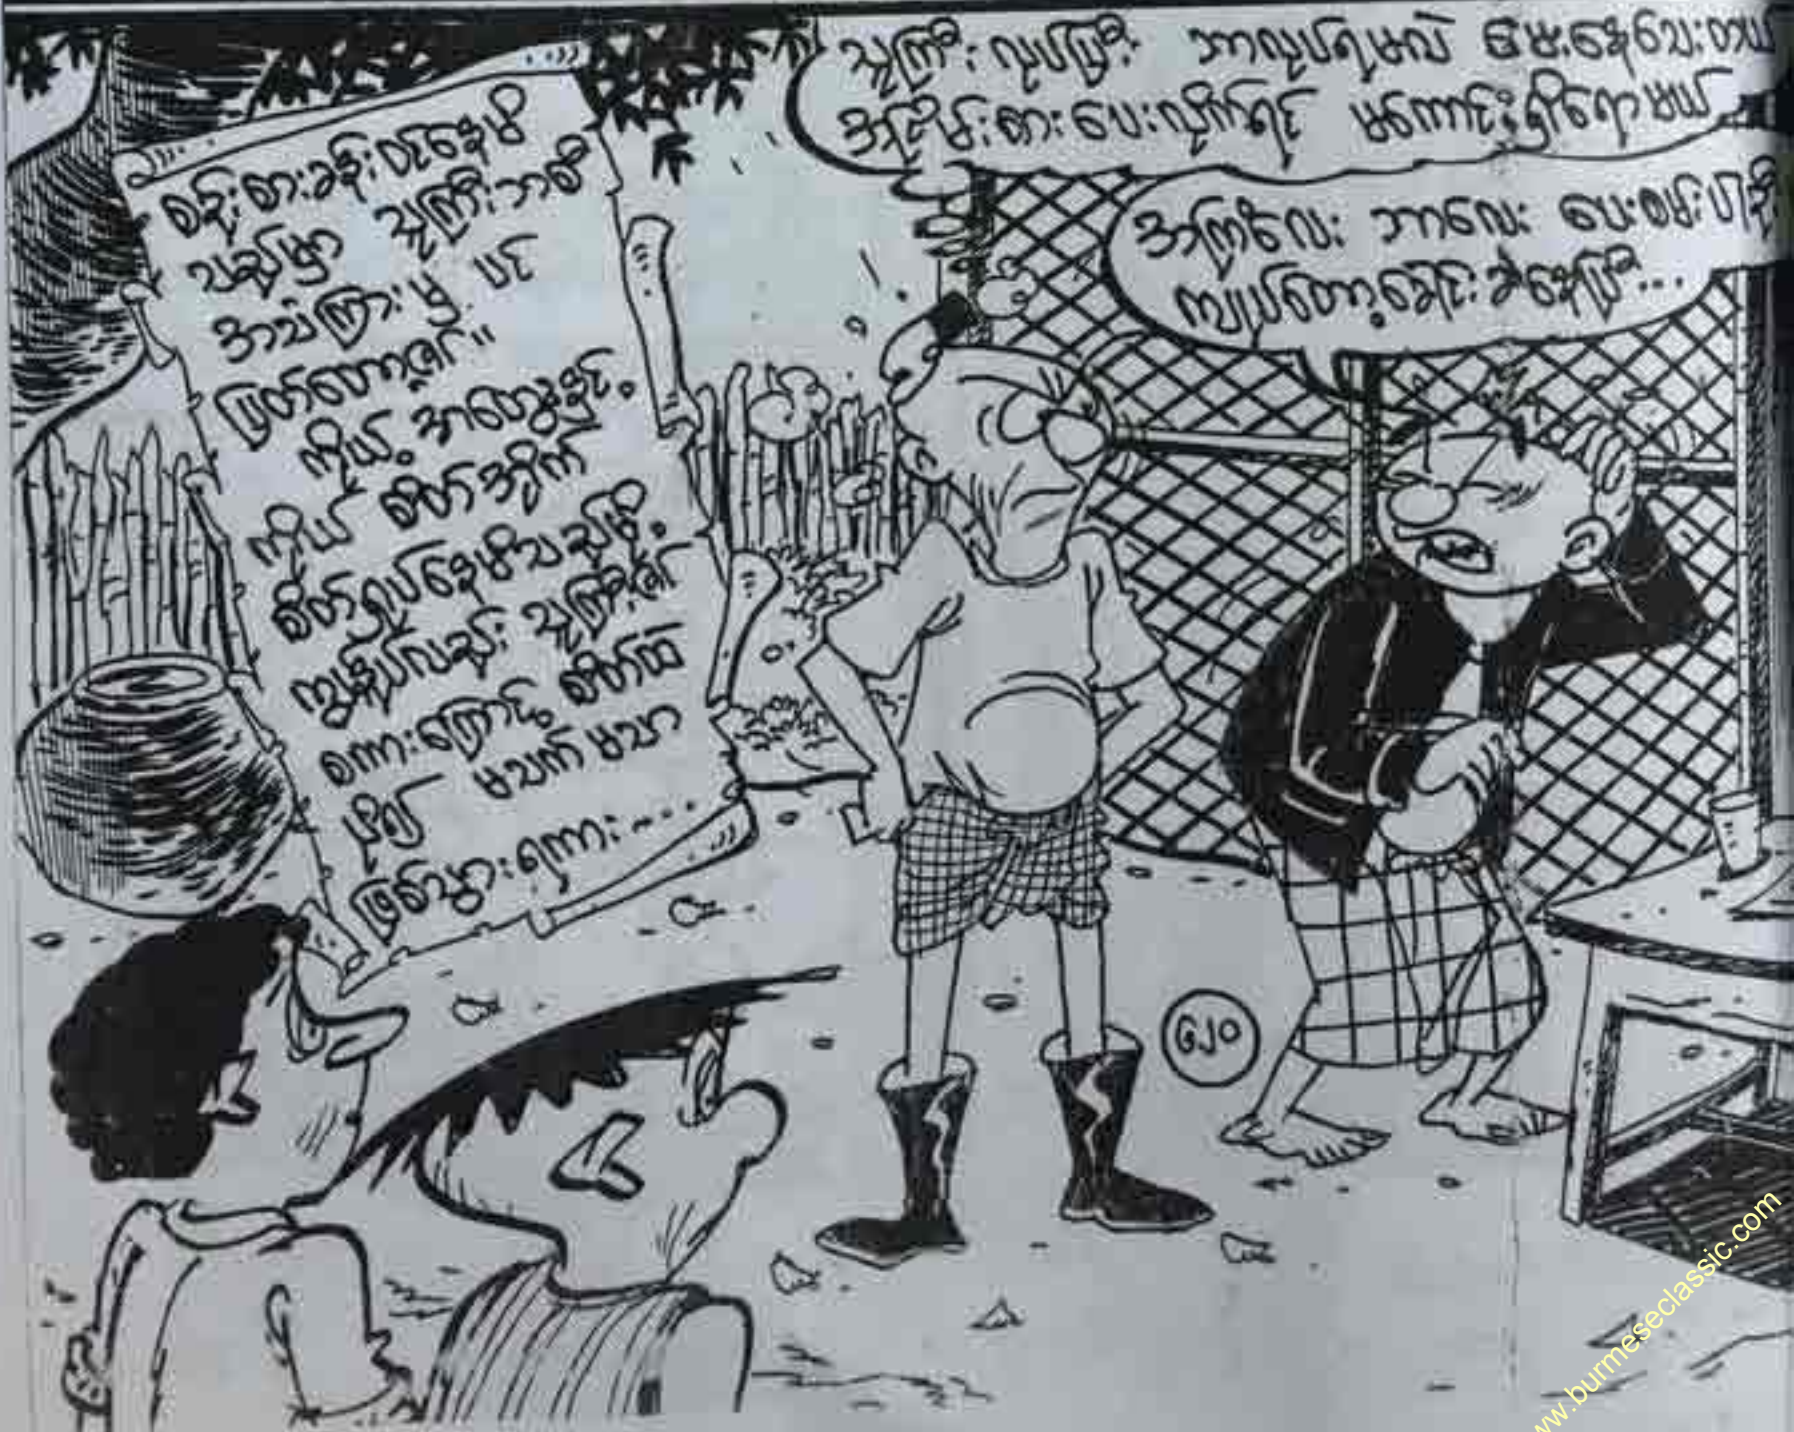 စဉ်းစားခန်းဝင်နေမိ
သည်မှာ သူကြီးဘစိ
အသံကြားမှ ပင်
ပြတ်တော့၏။
ကိုယ့် အတွေးနှင့်
ကိုယ် စိတ်အလိုက်
စိတ်ရှုပ်နေမိသည်မို့
ကျွန်ုပ်လည်း သူကြီး၏
စကားကြောင့် စိတ်ထဲ
၌ပင် မသက်မသာ
ဖြစ်သွားရကား ---
သူကြီး လုပ်ပြီး ဘာလုပ်ရမလဲ မေးနေသေးတယ်
အငြိမ်းစား ပေးလိုက်ရင် မကောင်းရှိရော့မယ်
အကြံလေး ဘာလေး ပေးစမ်းပါဦး
ကျုပ်တော့ခေါင်းခဲနေပြီ...
၆၂၀
www.burmeseclassic.com